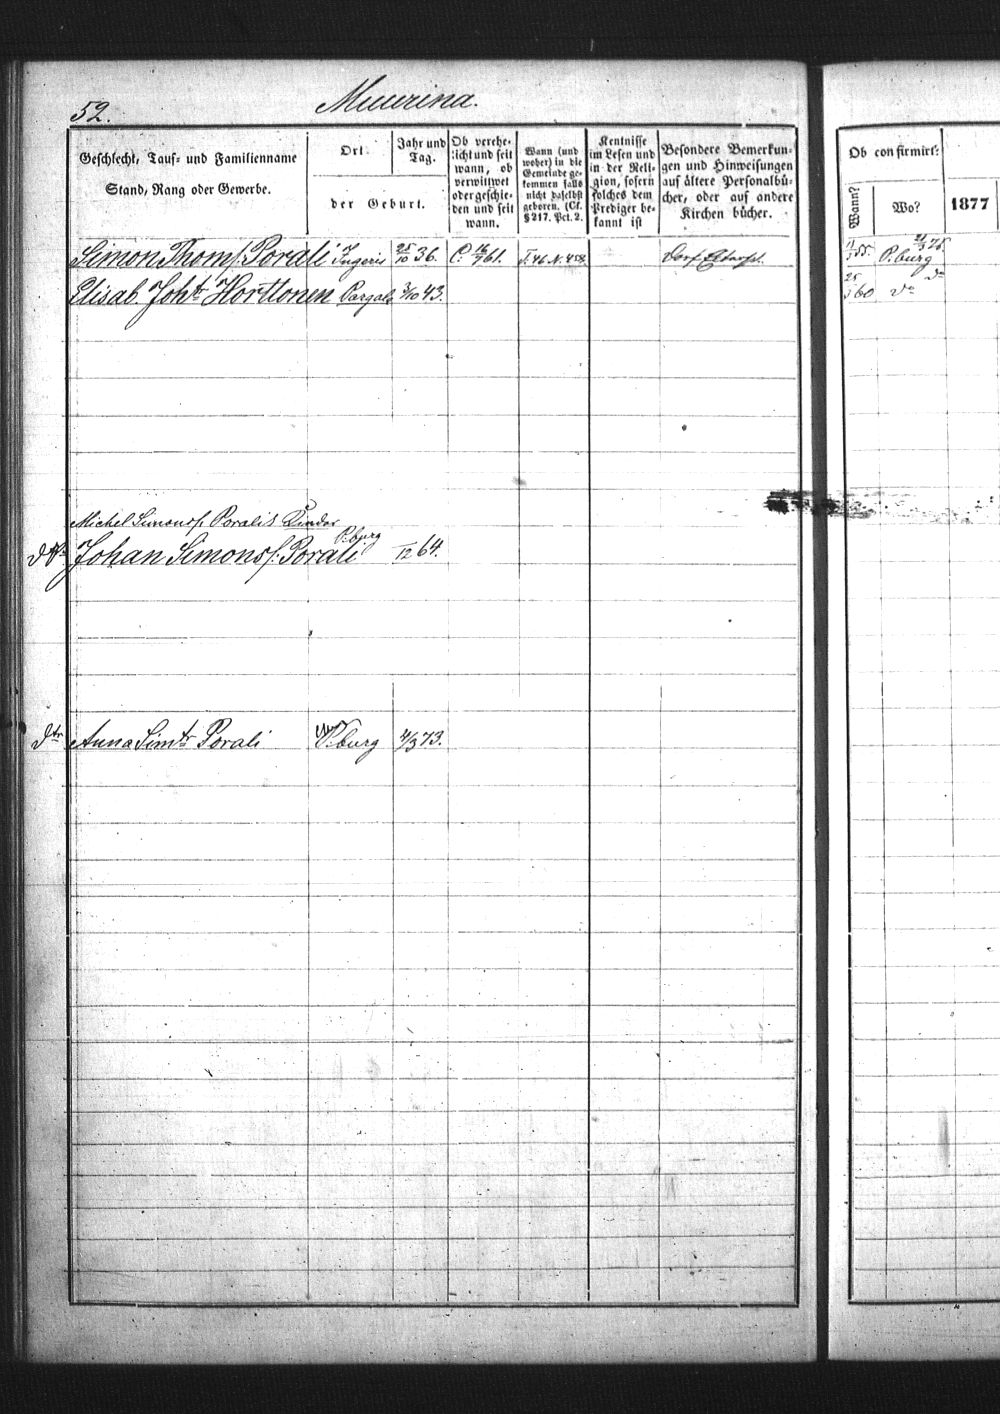 52. Muurina.
Geschlecht, Tauf- und Familienname
Stand, Rang oder Gewerbe.
Ort
Jahr und
Tag.
der Geburt.
Ob verehe-
licht und seit
wann, ob
verwittwet
oder geschie-
den und seit
wann.
Wann (und
woher) in die
Gemeinde ge-
kommen falls
nicht daselbst
geboren. (Cf.
§ 217. Pct. 2.
Kentnisse
im Lesen und
in der Reli-
gion, sofern
solches dem
Prediger be-
kannt ist
Besondere Bemerkun-
gen und Hinweisungen
auf ältere Personalbü-
cher, oder auf andere
Kirchen bücher.
Ob confirmirt:
Wann?
Wo?
1877
Simon Thoms. Porali Ingeris 25/10 36. C. 16/9 61. F. 46 N. 458. P.burg
Elisab Joh tr Horttonen Pargala 3/10 43. 60 do
Michel Simons. Poralis Kinder
Johan Simons. Porali P.burg /12 64.
dtr Anna Sim tr Porali P.burg 4/3 73.